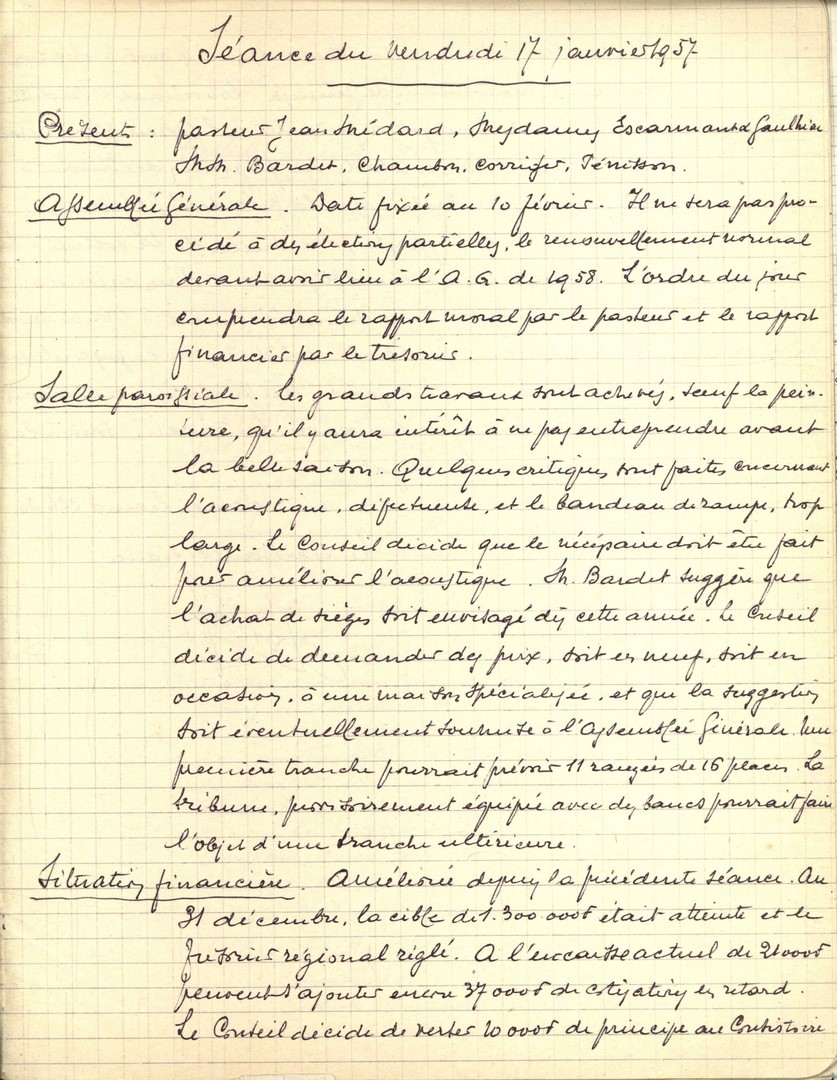 Séance du vendredi 17 janvier 1957
Présents : pasteur Jean Médard, Mesdames Escarmant & Gauthier
MM. Bardet, Chambon, Corriger, Ténisson.
Assemblée Générale. Date fixée au 10 février. Il ne sera pas pro-
cédé à des élections partielles, le renouvellement normal
devant avoir lieu à l'A.G. de 1958. L'ordre du jour
comprendra le rapport moral par le pasteur et le rapport
financier par le trésorier.
Salle paroissiale. Les grands travaux sont achevés, sauf la pein-
ture, qu'il y aura intérêt à ne pas entreprendre avant
la belle saison. Quelques critiques sont faites concernant
l'acoustique, défectueuse, et le bandeau de rampe, trop
large. Le Conseil décide que le nécessaire doit être fait
pour améliorer l'acoustique. M. Bardet suggère que
l'achat de sièges soit envisagé dès cette année. Le Conseil
décide de demander des prix, soit en neuf, soit en
occasion, à une maison spécialisée, et que la suggestion
soit éventuellement soumise à l'Assemblée Générale. Une
première tranche pourrait prévoir 11 rangées de 16 places. La
tribune, provisoirement équipée avec des bancs pourrait faire
l'objet d'une tranche ultérieure.
Situation financière. Améliorée depuis la précédente séance. Au
31 décembre, la cible de 1.300 000F était atteinte et le
trésorier régional réglé. A l'encaisse actuel de 21000F
peuvent s'ajouter encore 37 000F de cotisations en retard.
Le Conseil décide de verser 10 000F de principe au Consistoire